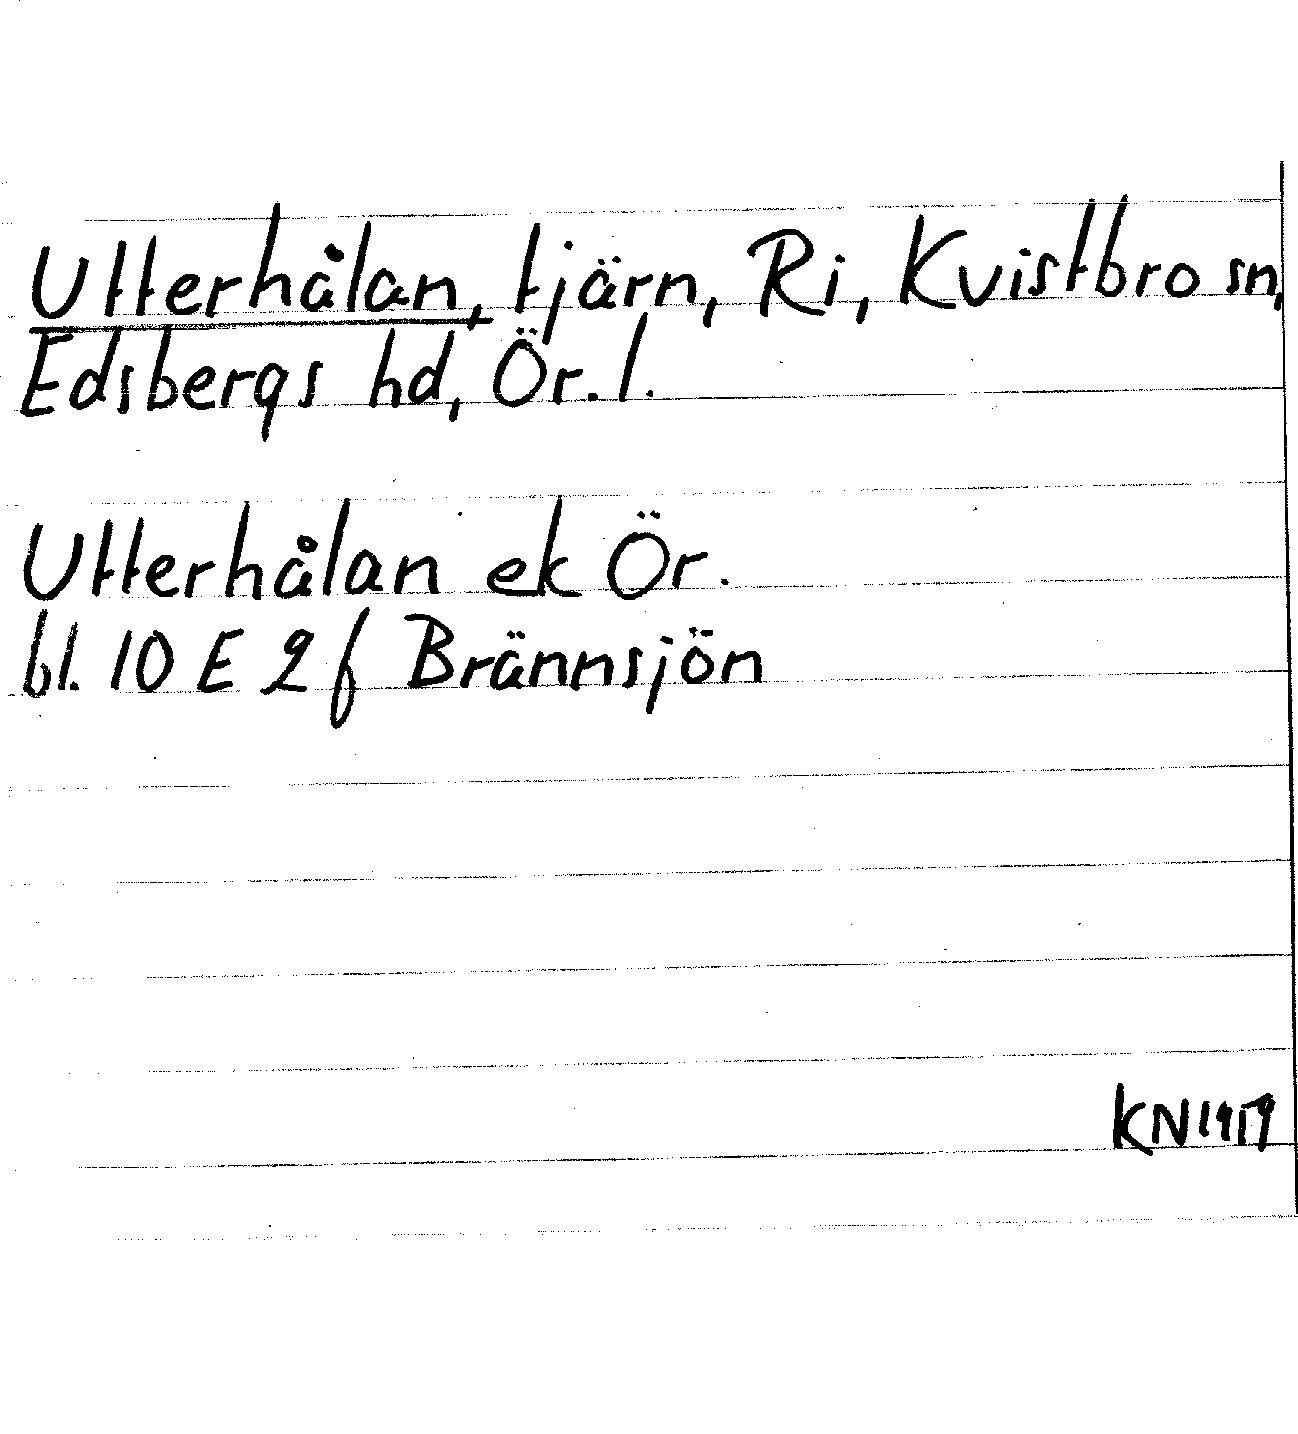 Utterhålan, tjärn, Ri, Kvistbro sn,
Edsbergs hd, Ör. l.
Utterhålan ek Ör.
bl. 10 E 2 f Brännsjön
KN